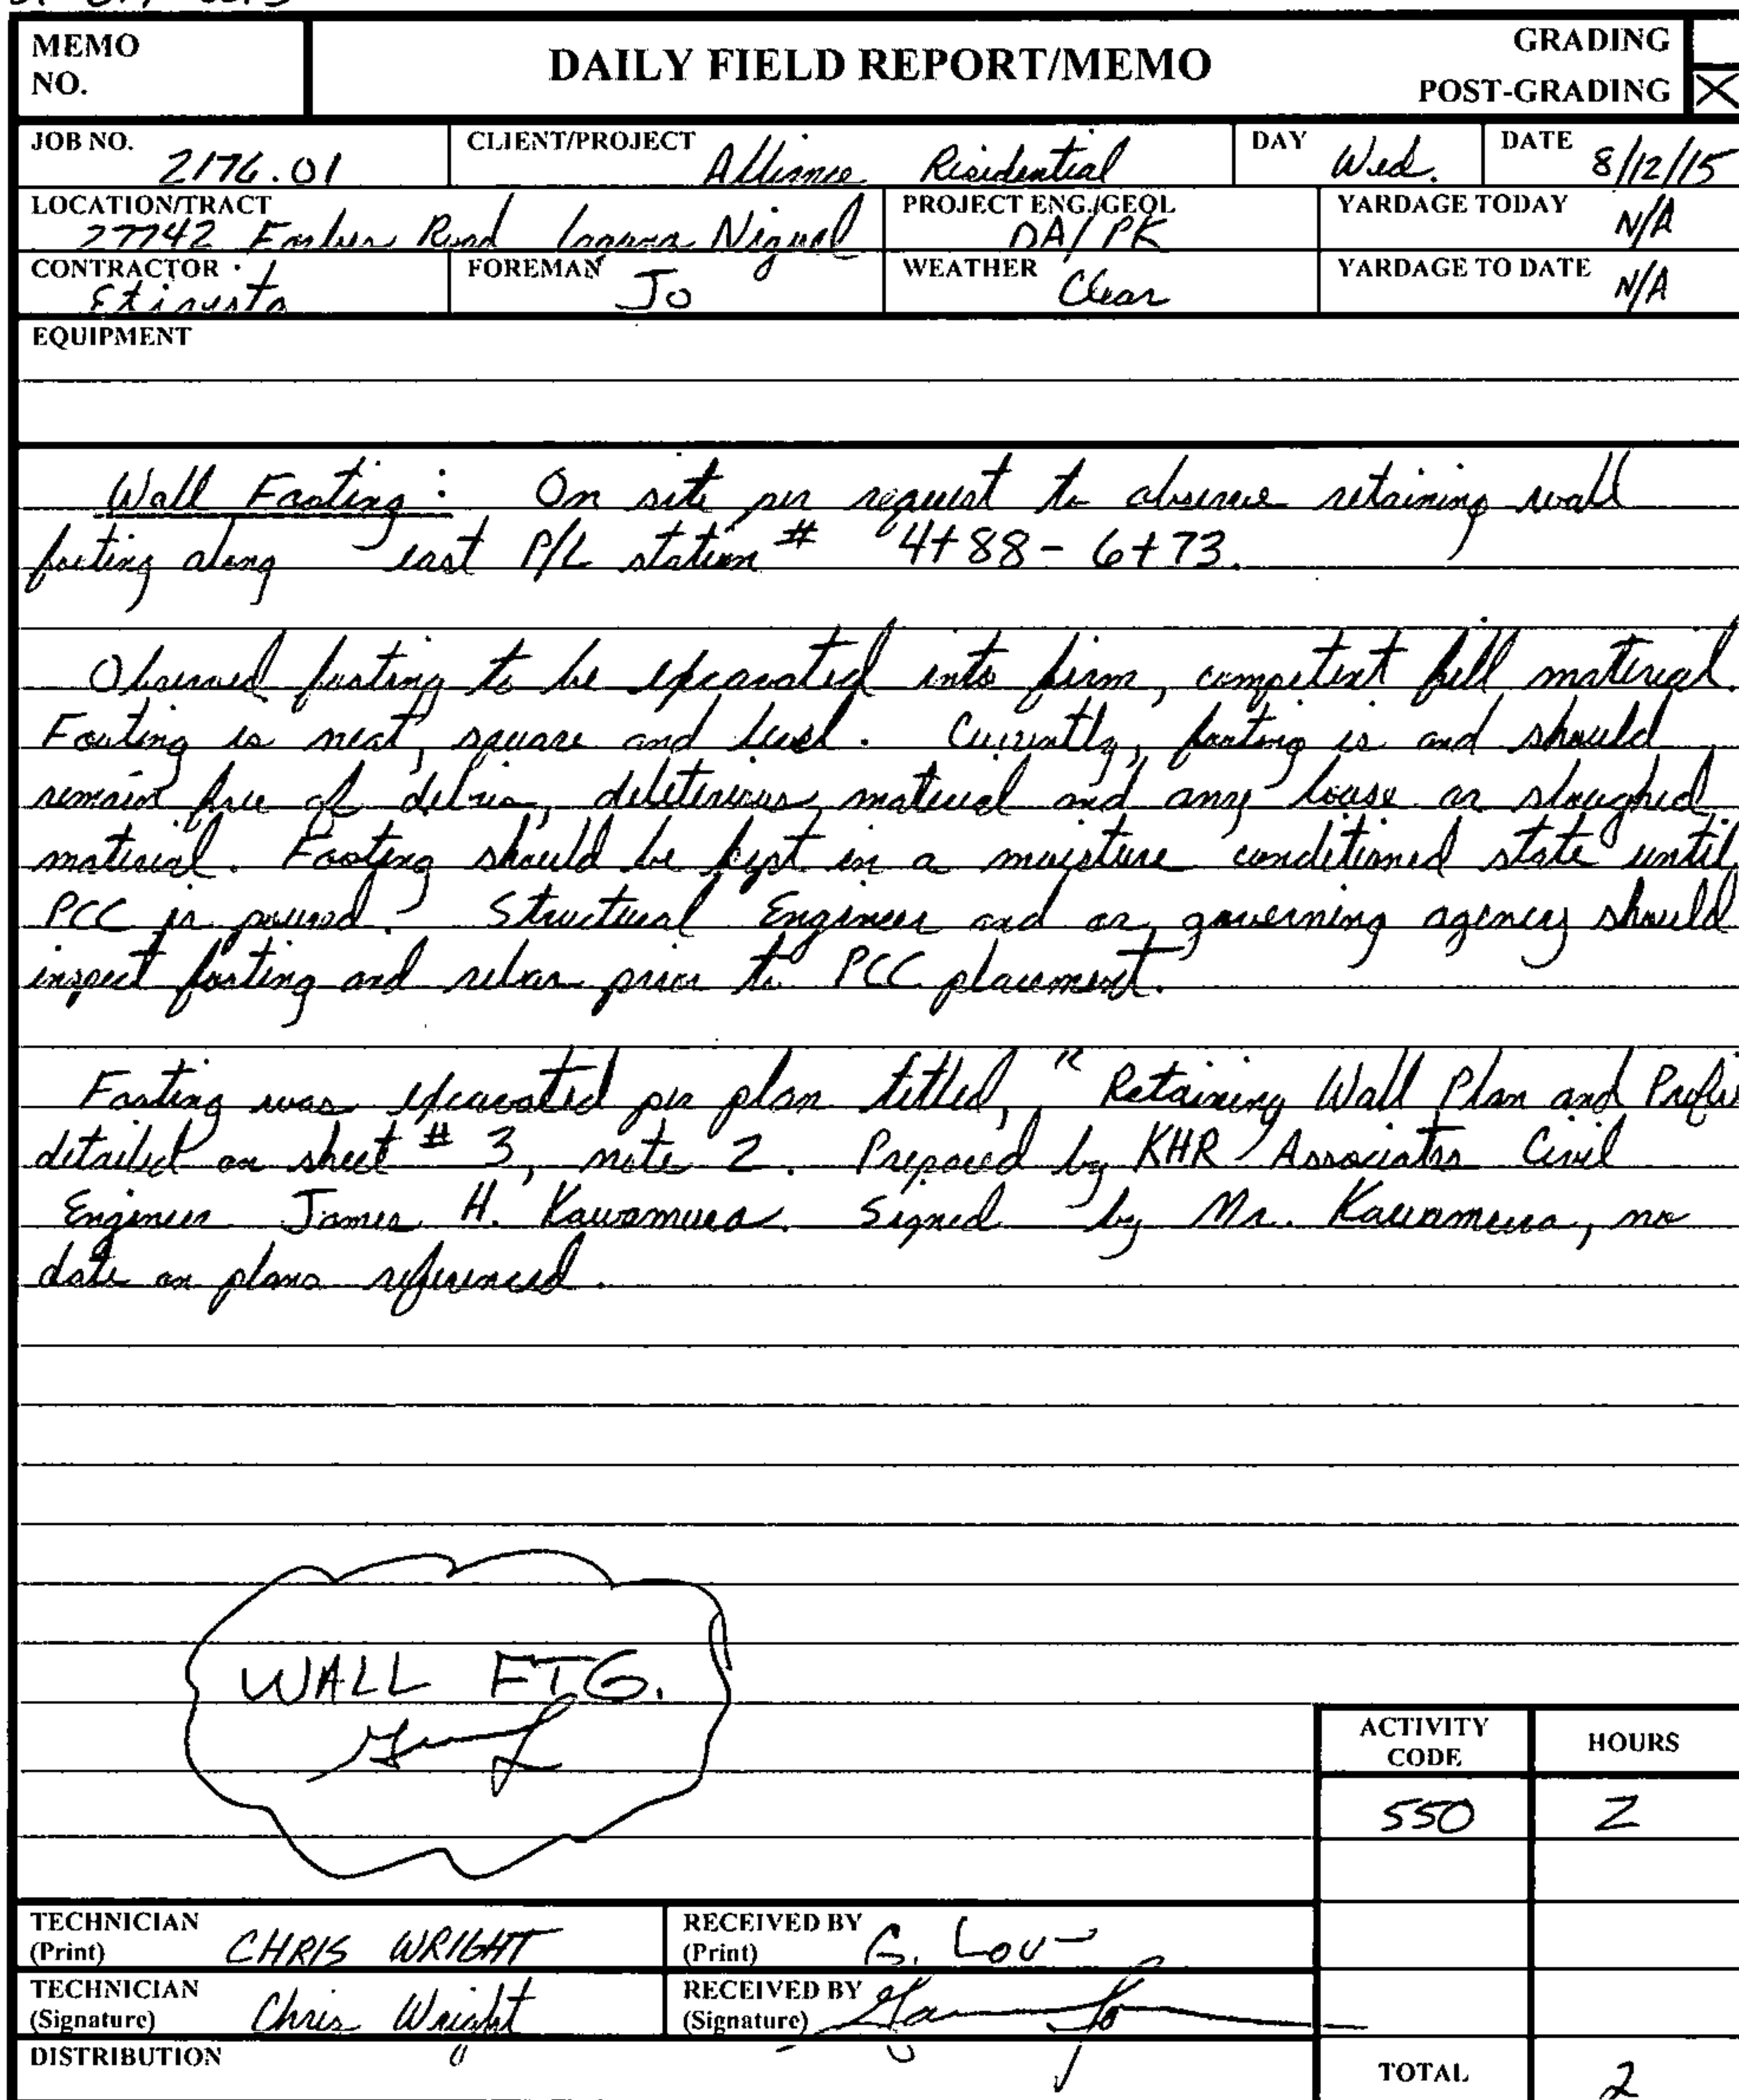 MEMO NO.
DAILY FIELD REPORT/MEMO
GRADING
POST-GRADING X
JOB NO. 2176.01
CLIENT/PROJECT Alliance Residential
DAY Wed.
DATE 8/12/15
LOCATION/TRACT 27742 Road Laguna Niguel
PROJECT ENG./GEOL DA/PK
YARDAGE TODAY N/A
CONTRACTOR
FOREMAN Jo
WEATHER Clear
YARDAGE TO DATE N/A
EQUIPMENT
Wall Footing: On site per request to observe retaining wall
footing along east P/L station # 4+88-6+73.
Observed footing to be excavated into firm, competent fill material.
Footing is neat, square and level. Currently, footing is and should
remain free of debris, deleterious material and any loose or sloughed
material. Footing should be kept in a moisture conditioned state until
PCC is poured. Structural Engineer and or governing agency should
inspect footing and rebar prior to PCC placement.
Footing was excavated per plan titled, " Retaining Wall Plan and
detailed on sheet # 3, note 2. Prepared by KHR Associates Civil
Engineer James H. Kawamura. Signed by Mr. Kawamura, no
date on plans referenced.
WALL FTG.
ACTIVITY CODE
HOURS
550 2
TECHNICIAN (Print) CHRIS WRIGHT
RECEIVED BY (Print) G.
TECHNICIAN (Signature) Chris Wright
RECEIVED BY (Signature)
DISTRIBUTION
TOTAL 2